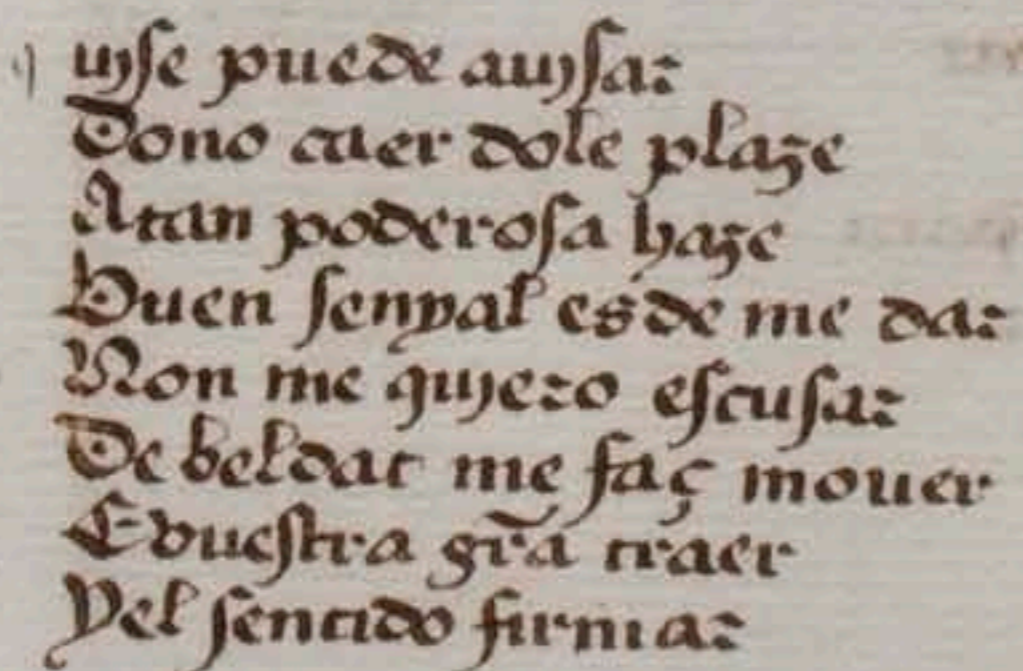 q uyse puede auysar
Dono caer dole plaze
Atan poderosa haze
Buen senyal esde me dar
Non me quyero escusar
De beldat me faç mouer
E vuestra gr̃a traer
Yel sentido firmar